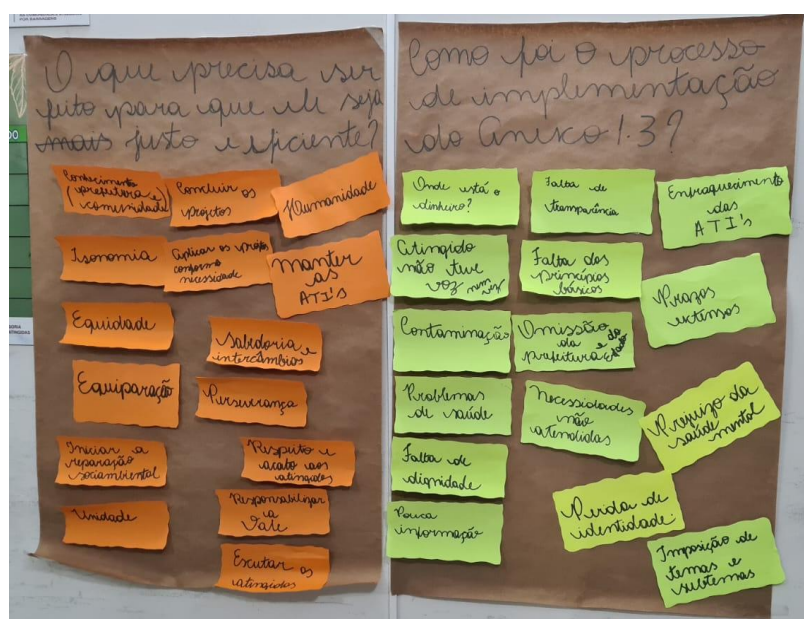 O que precisa ser
feito para que ele seja
mais justo e eficiente?
Conhecimento
(prefeitura e
comunidade)
Concluir os
projetos
Humanidade
Isonomia
Aplicar os
conforme
necessidade
Manter
as
ATI's
Equidade
Sabedoria e
intercâmbios
Equiparação
Perseverança
Iniciar a
reparação
socioambiental
Respeito e
acato aos
atingidos
Unidade
Responsabilizar
a
Vale
Escutar os
atingidos
Como foi o processo
de implementação
do Anexo 1.3?
Onde está o
dinheiro?
Falta de
transparência
Enfraquecimento
das
ATI's
Atingido
não teve
voz nem vez
Falta dos
princípios
básicos
Prazos
extensos
Contaminação
Omissão
da e do
prefeitura
Problemas
de saúde
Necessidades
não
atendidas
Prejuízo da
saúde
mental
Falta de
dignidade
Perda de
identidade
Pouca
informação
Imposição de
temas e
subtemas